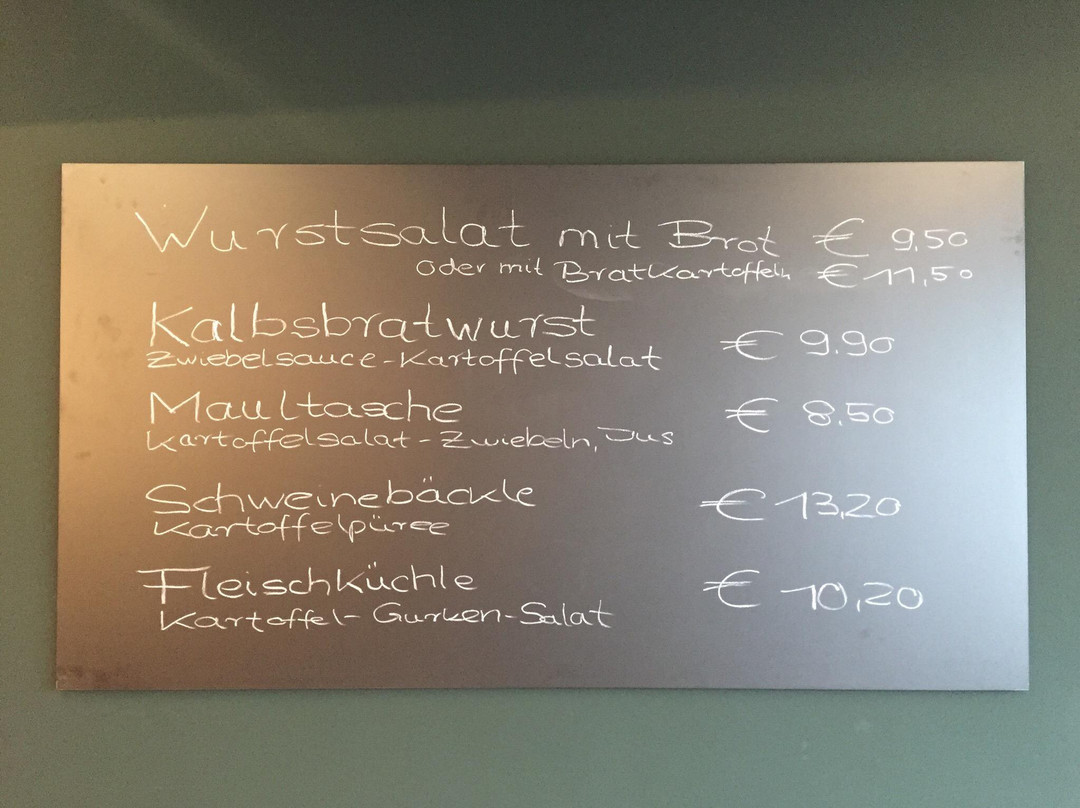 Wurstsalat mit Brot € 9,50
oder mit Bratkartoffeln €11,50
Kalbsbratwurst € 9.90
Zwiebelsauce-Kartoffelsalat
Maultasche € 8,50
Kartoffelsalat-Zwiebeln, Jus
Schweinebäckle € 13,20
Kartoffelpüree
Fleischküchle € 10,20
Kartoffel-Gurken-Salat